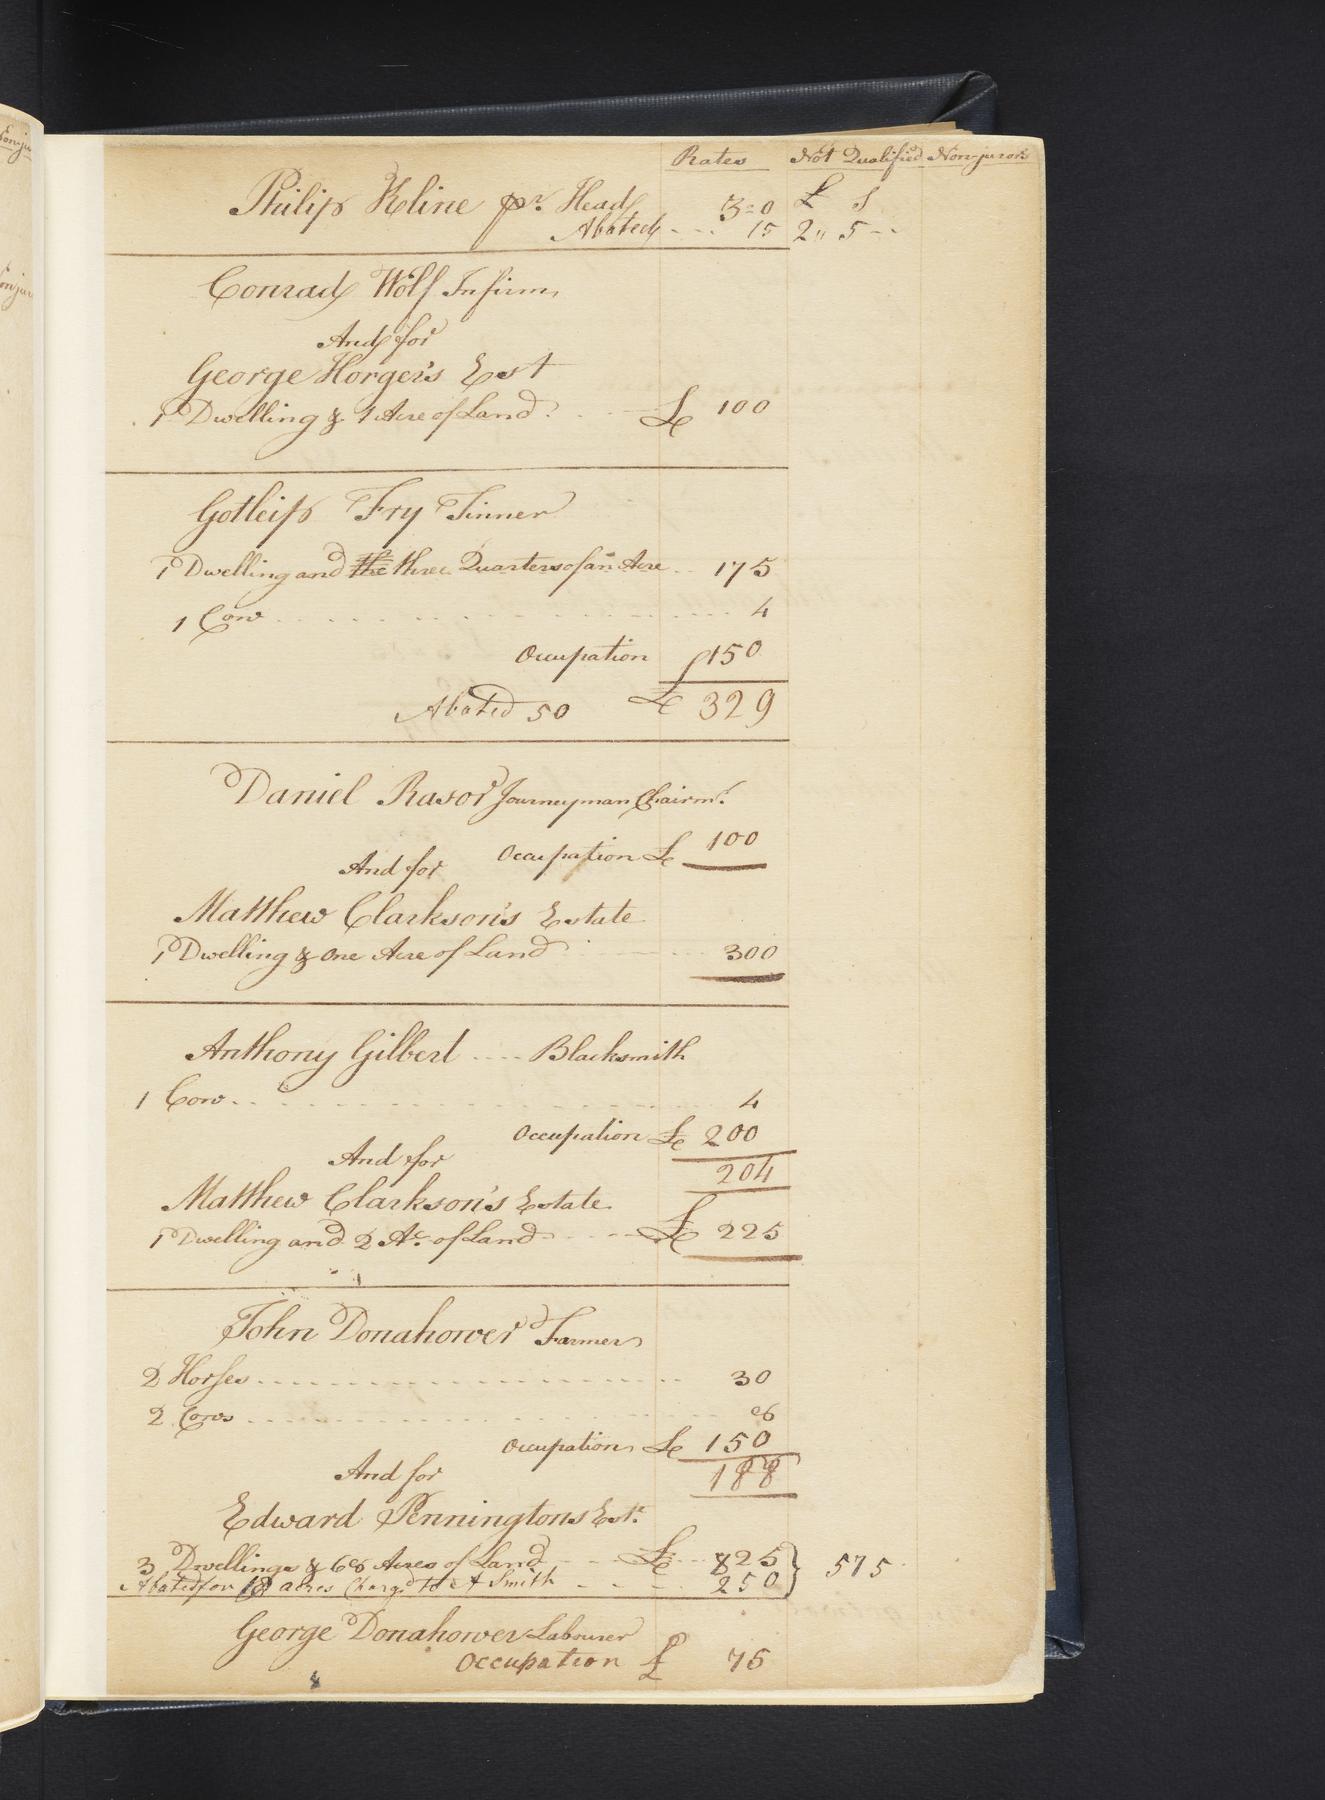 Rates Not Qualified Non-jurors
Philip Kline pr. Head 3=0 £ s
Abated 15 2" 5
Conrad Wolf Infirm
And for
George Horger's Est
1 Dwelling & 1 Acre of Land £ 100
Gotleip Fry Tinner
1 Dwelling and the three Quarters of an Acre 175
1 Cow 4
Occupation £150
Abated 50 £ 329
Daniel Rasor Journeyman Chairmr.
Occupation £ 100
And for
Matthew Clarkson's Estate
1 Dwelling & one Acre of Land 300
Anthony Gilbert Blacksmith
1 Cow 4
Occupation £ 200
And for
204
Matthew Clarkson's Estate
1 Dwelling and 2 Ac. of Land £ 225
John Donahower Farmer
2 Horses 30
2 Cows 8
Occupation £ 150
And for 188
Edward Penningtons Est.
3 Dwellings & 68 Acres of Land £ 825 } 575
Abated for 18 acres Charg'd to A Smith 250
George Donahower Labourer
Occupation £ 75